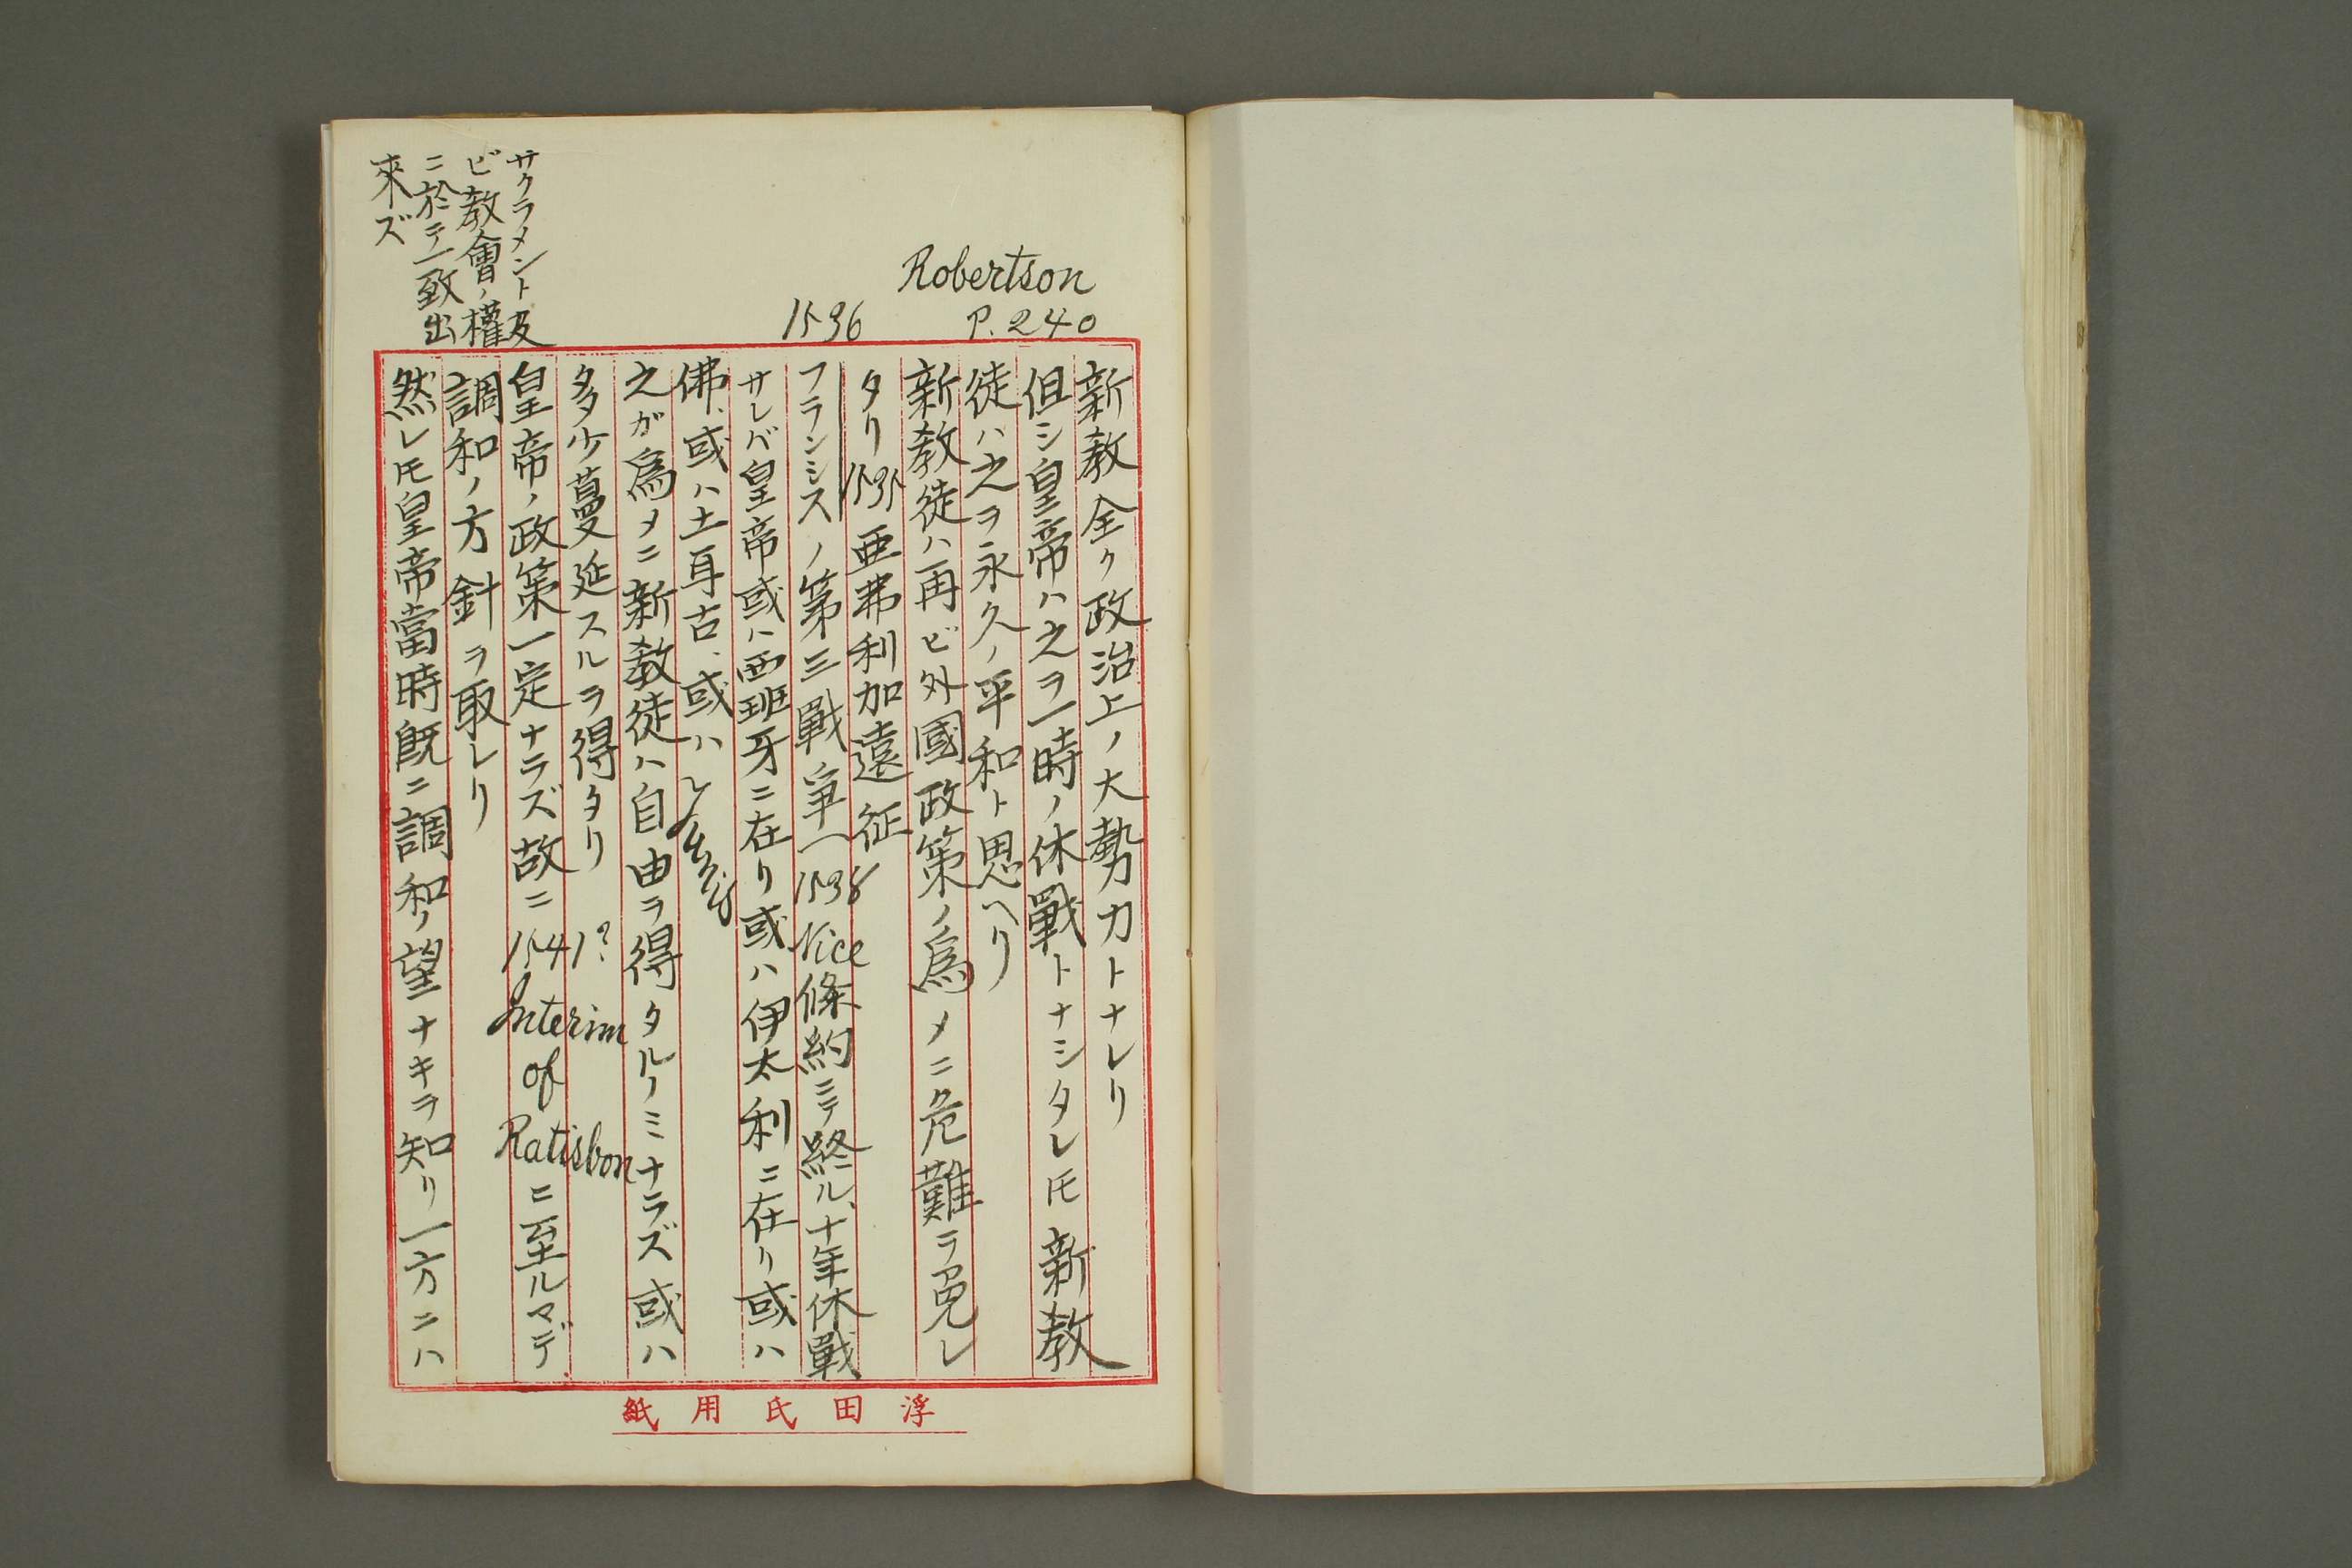 Robertson
P. 240
1536
サクラメント及
ビ教會ノ權
ニ於テ一致出
來ズ
新教全ク政治上ノ大勢力トナレリ
但シ皇帝ハ之ヲ一時ノ休戰トナシタレ𪜈新教
徒ハ之ヲ永久ノ平和ト思ヘリ
新教徒ハ再ビ外國政策ノ爲メニ危難ヲ免レ
タリ 1535 亜弗利加遠征
フランシスノ第三戰争―1538 Nice 條約ニテ終ル、十年休戰
サレバ皇帝或ハ西班牙ニ在リ或ハ伊太利ニ在リ或ハ
佛、或ハ土耳古、或ハ
之ガ爲メニ新教徒ハ自由ヲ得タルノミナラズ或ハ
多少蔓延スルヲ得タリ
皇帝ノ政策一定ナラズ故ニ 1541? Interim of Ratisbon ニ至ルマデ
調和ノ方針ヲ取レリ
然レ𪜈皇帝當時既ニ調和ノ望ナキヲ知リ一方ニハ
浮田氏用紙